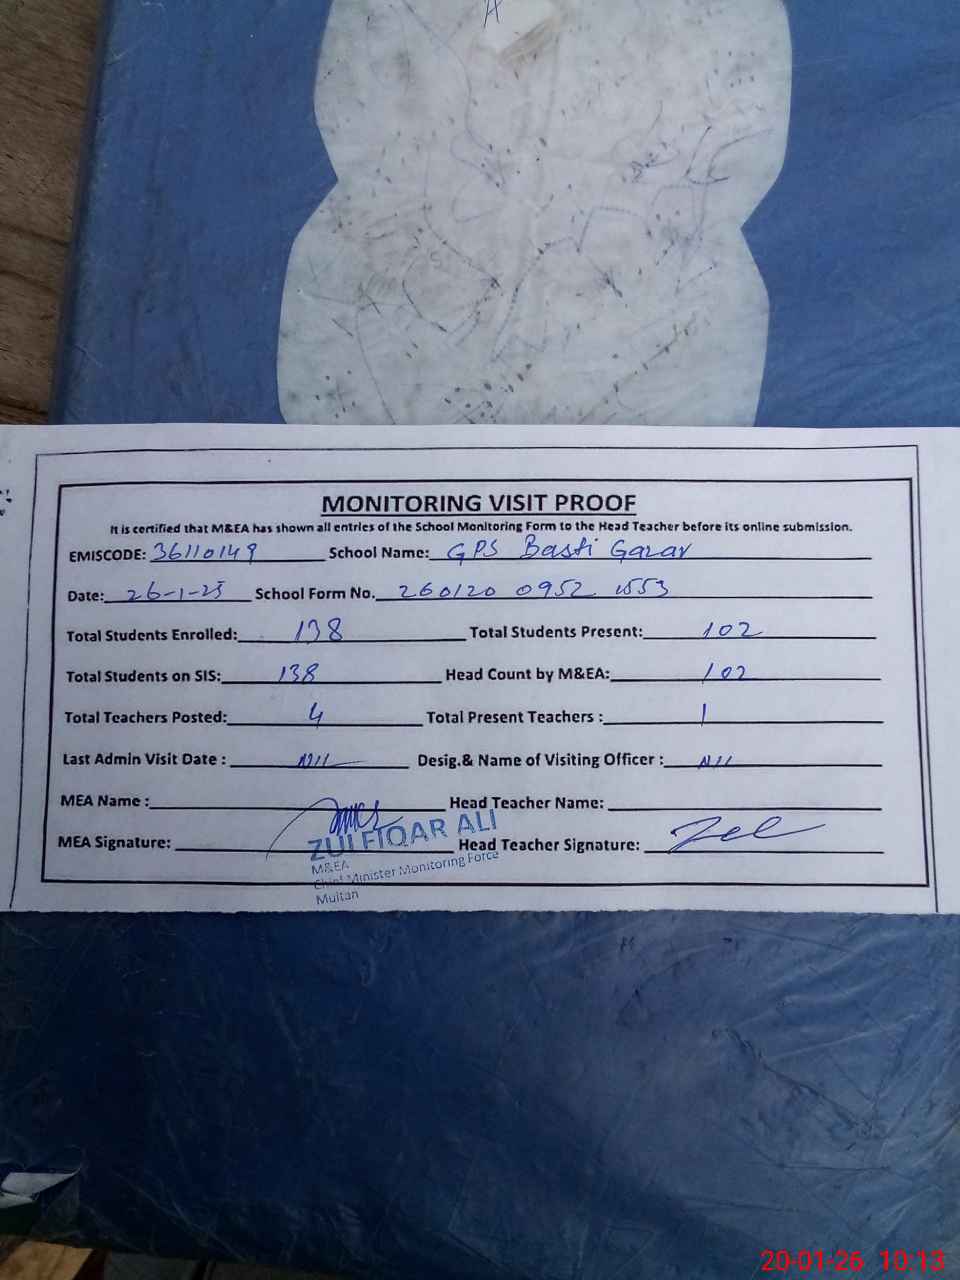 A
MONITORING VISIT PROOF
It is certified that M&EA has shown all entries of the School Monitoring Form to the Head Teacher before its online submission.
EMISCODE: 36110149 School Name: GPS Basti Gazar
Date: 26-1-25 School Form No. 260120 0952 1553
Total Students Enrolled: 138 Total Students Present: 102
Total Students on SIS: 138 Head Count by M&EA: 102
Total Teachers Posted: 4 Total Present Teachers : 1
Last Admin Visit Date : Nil Desig.& Name of Visiting Officer : Nil
MEA Name : Head Teacher Name:
MEA Signature: Head Teacher Signature:
ZULFIQAR ALI
M&EA
Chief Minister Monitoring Force
Multan
20-01-26 10:13